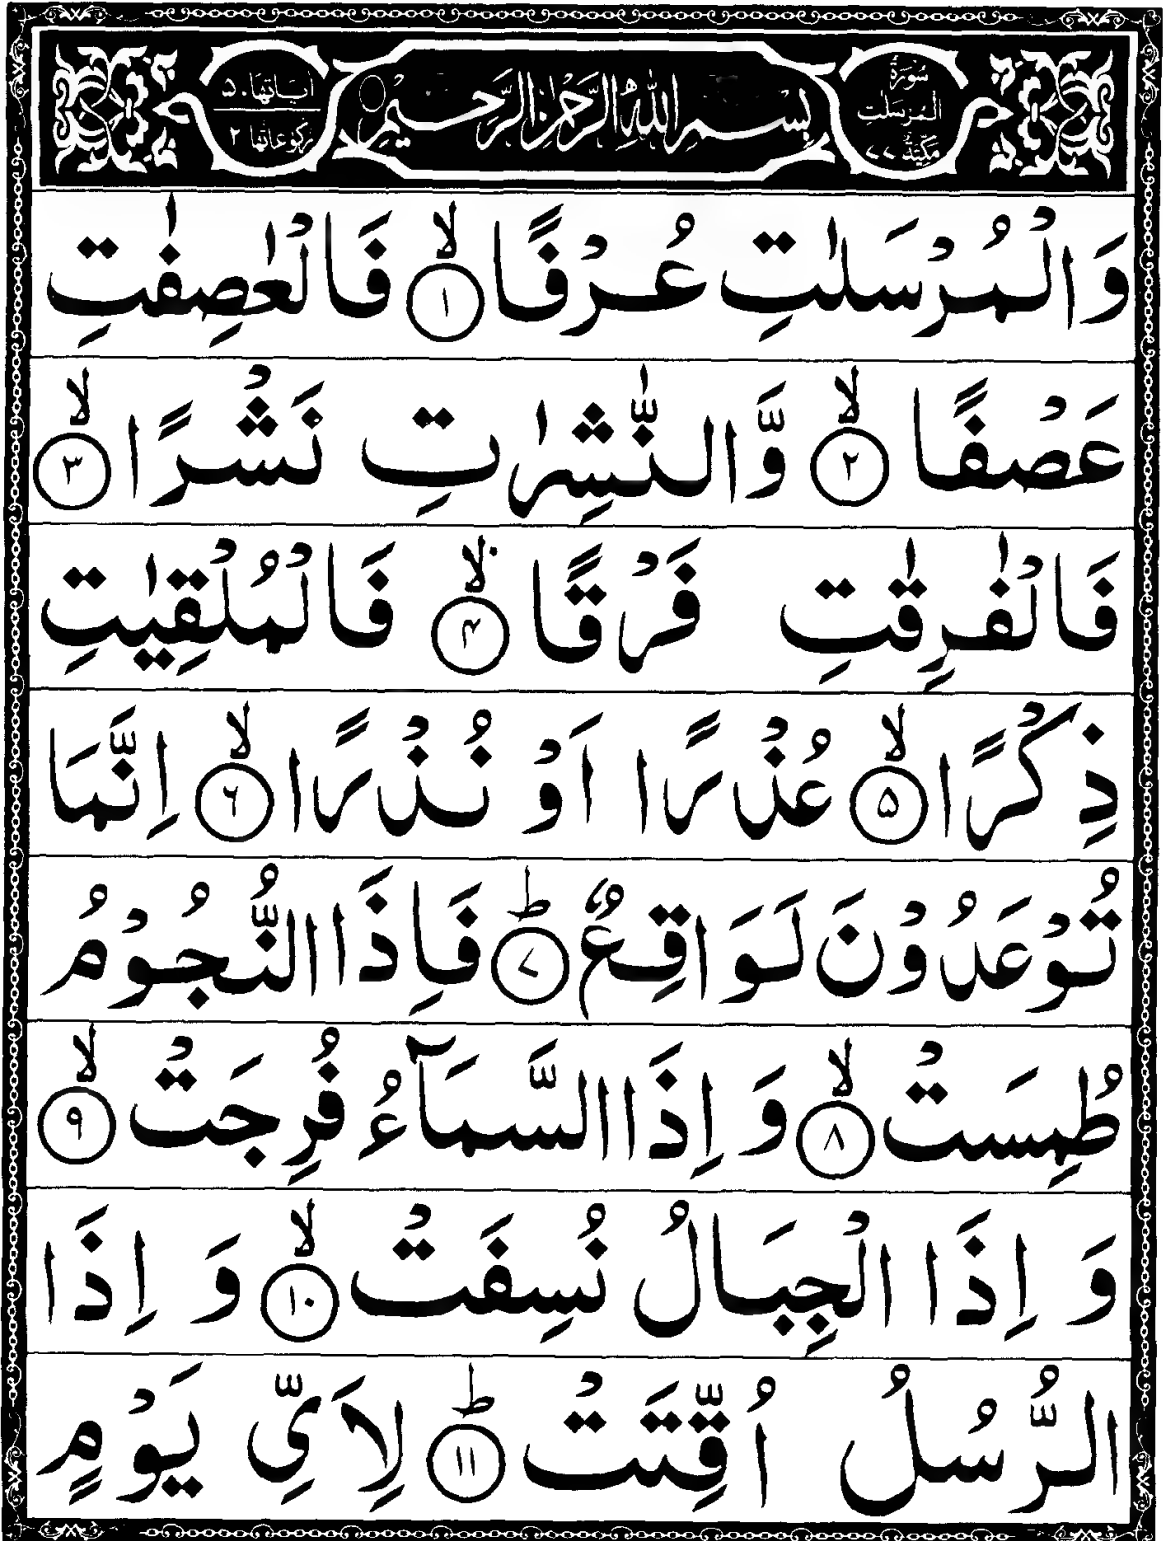 سُورَةُ الْمُرْسَلٰت مَكِّيَّةٌ ٧٧
بِسْمِ اللّٰهِ الرَّحْمٰنِ الرَّحِيْمِ
اٰيَاتُهَا ٥٠ رُكُوْعَاتُهَا ٢
وَالْمُرْسَلٰتِ عُرْفًا ۙ﴿١﴾ فَالْعٰصِفٰتِ
عَصْفًا ۙ﴿٢﴾ وَّالنّٰشِرٰتِ نَشْرًا ۙ﴿٣﴾
فَالْفٰرِقٰتِ فَرْقًا ۙ﴿٤﴾ فَالْمُلْقِيٰتِ
ذِكْرًا ۙ﴿٥﴾ عُذْرًا اَوْ نُذْرًا ۙ﴿٦﴾ اِنَّمَا
تُوْعَدُوْنَ لَوَاقِعٌ ؕ﴿٧﴾ فَاِذَا النُّجُوْمُ
طُمِسَتْ ۙ﴿٨﴾ وَ اِذَا السَّمَآءُ فُرِجَتْ ۙ﴿٩﴾
وَ اِذَا الْجِبَالُ نُسِفَتْ ۙ﴿١٠﴾ وَ اِذَا
الرُّسُلُ اُقِّتَتْ ؕ﴿١١﴾ لِاَيِّ يَوْمٍ